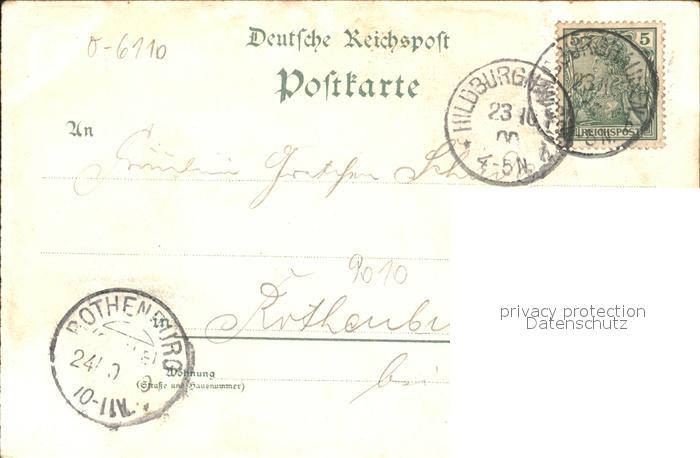 0-6110
Deutsche Reichspost
Postkarte
5 5
REICHSPOST
HILDBURGH
23 10
00
4-5N.
An
Fräulein Gretchen
9010
Rothenbu
ROTHENBURG
24
10-11
Wohnung
(Straße und Hausnummer)
bei
privacy protection
Datenschutz